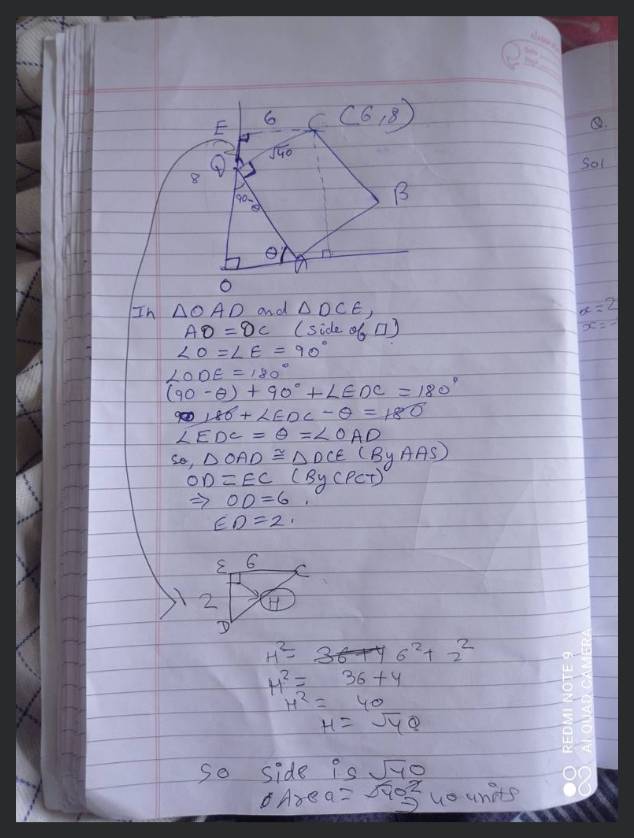 E 6 C (6,8)
D √40
8
90-θ
B
θ A
O
In △OAD and △DCE,
AD = DC (side of □)
∠O = ∠E = 90°
∠ODE = 180°
(90 - θ) + 90° + ∠EDC = 180°
180 + ∠EDC - θ = 180
∠EDC = θ = ∠OAD
So, △OAD ≅ △DCE (By AAS)
OD = EC (By CPCT)
⇒ OD = 6.
ED = 2.
E 6 C
2 H
D
H² = 36+4 6² + 2²
H² = 36 + 4
H² = 40
H = √40
So side is √40
Area = √40² ⇒ 40 units
Q.
Sol
x = 2
x = -
REDMI NOTE 9
AI QUAD CAMERA